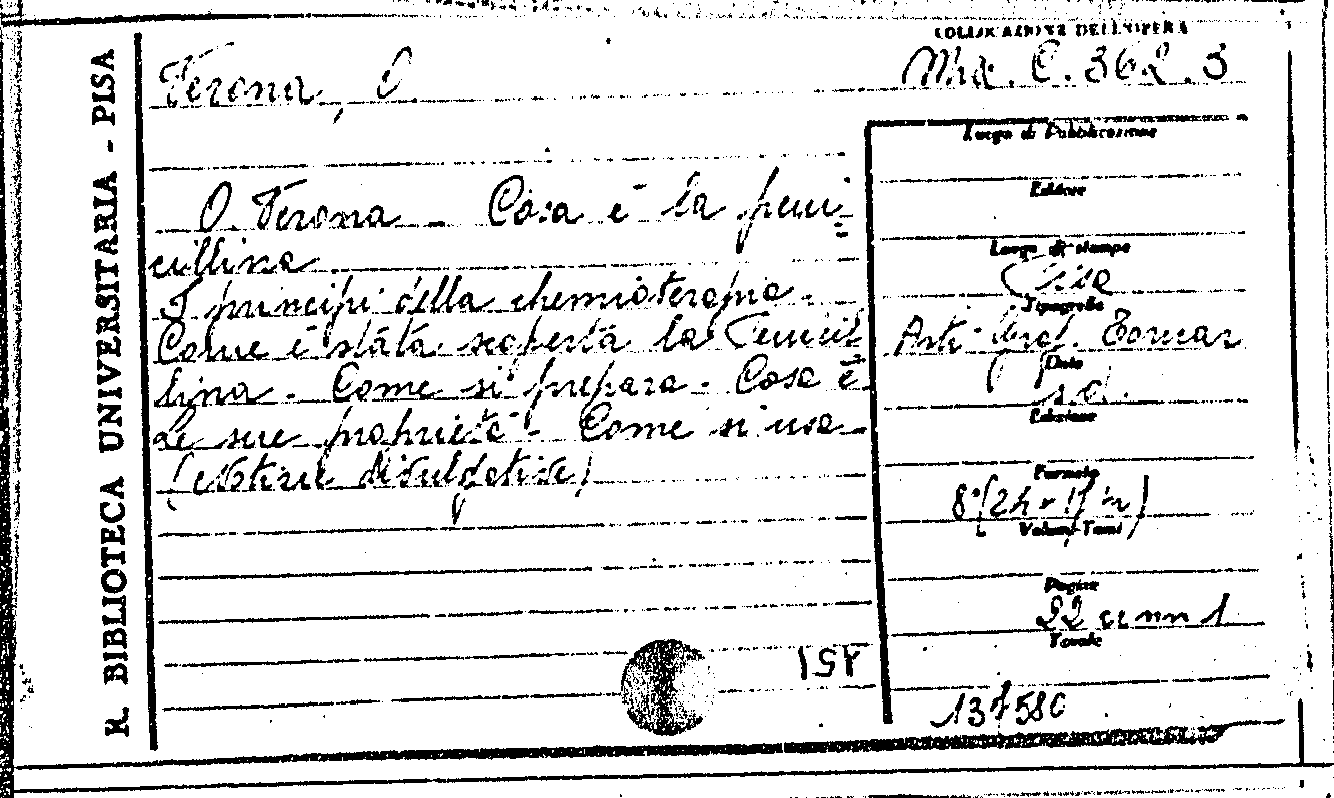 R. BIBLIOTECA UNIVERSITARIA - PISA
COLLOCAZIONE DELL'OPERA
Verona, O. Misc. C. 362. 3
O. Verona - Cosa è la peni-
cillina
I principi della chemioterapia -
Come è stata scoperta la Penicil
lina - Come si prepara - Cosa è
Le sue proprietà - Come si usa -
Luogo di Pubblicazione
Editore
Luogo di stampa
Pisa
Tipografia
Arti Graf. Tornar
Data
s.d.
Edizione
Formato
8°
Volumi-Tomi
Pagine
22
Tavole
137580
151